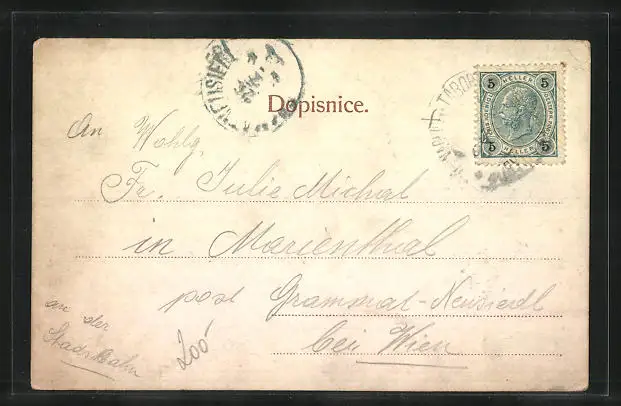 Dopisnice.
5 HELLER 5
5 HELLER 5
An Wohlg.
Fr. Julie Michal
in Marienthal
post Grammat-Neusiedl
bei Wien
an der
Staatsbahn
200